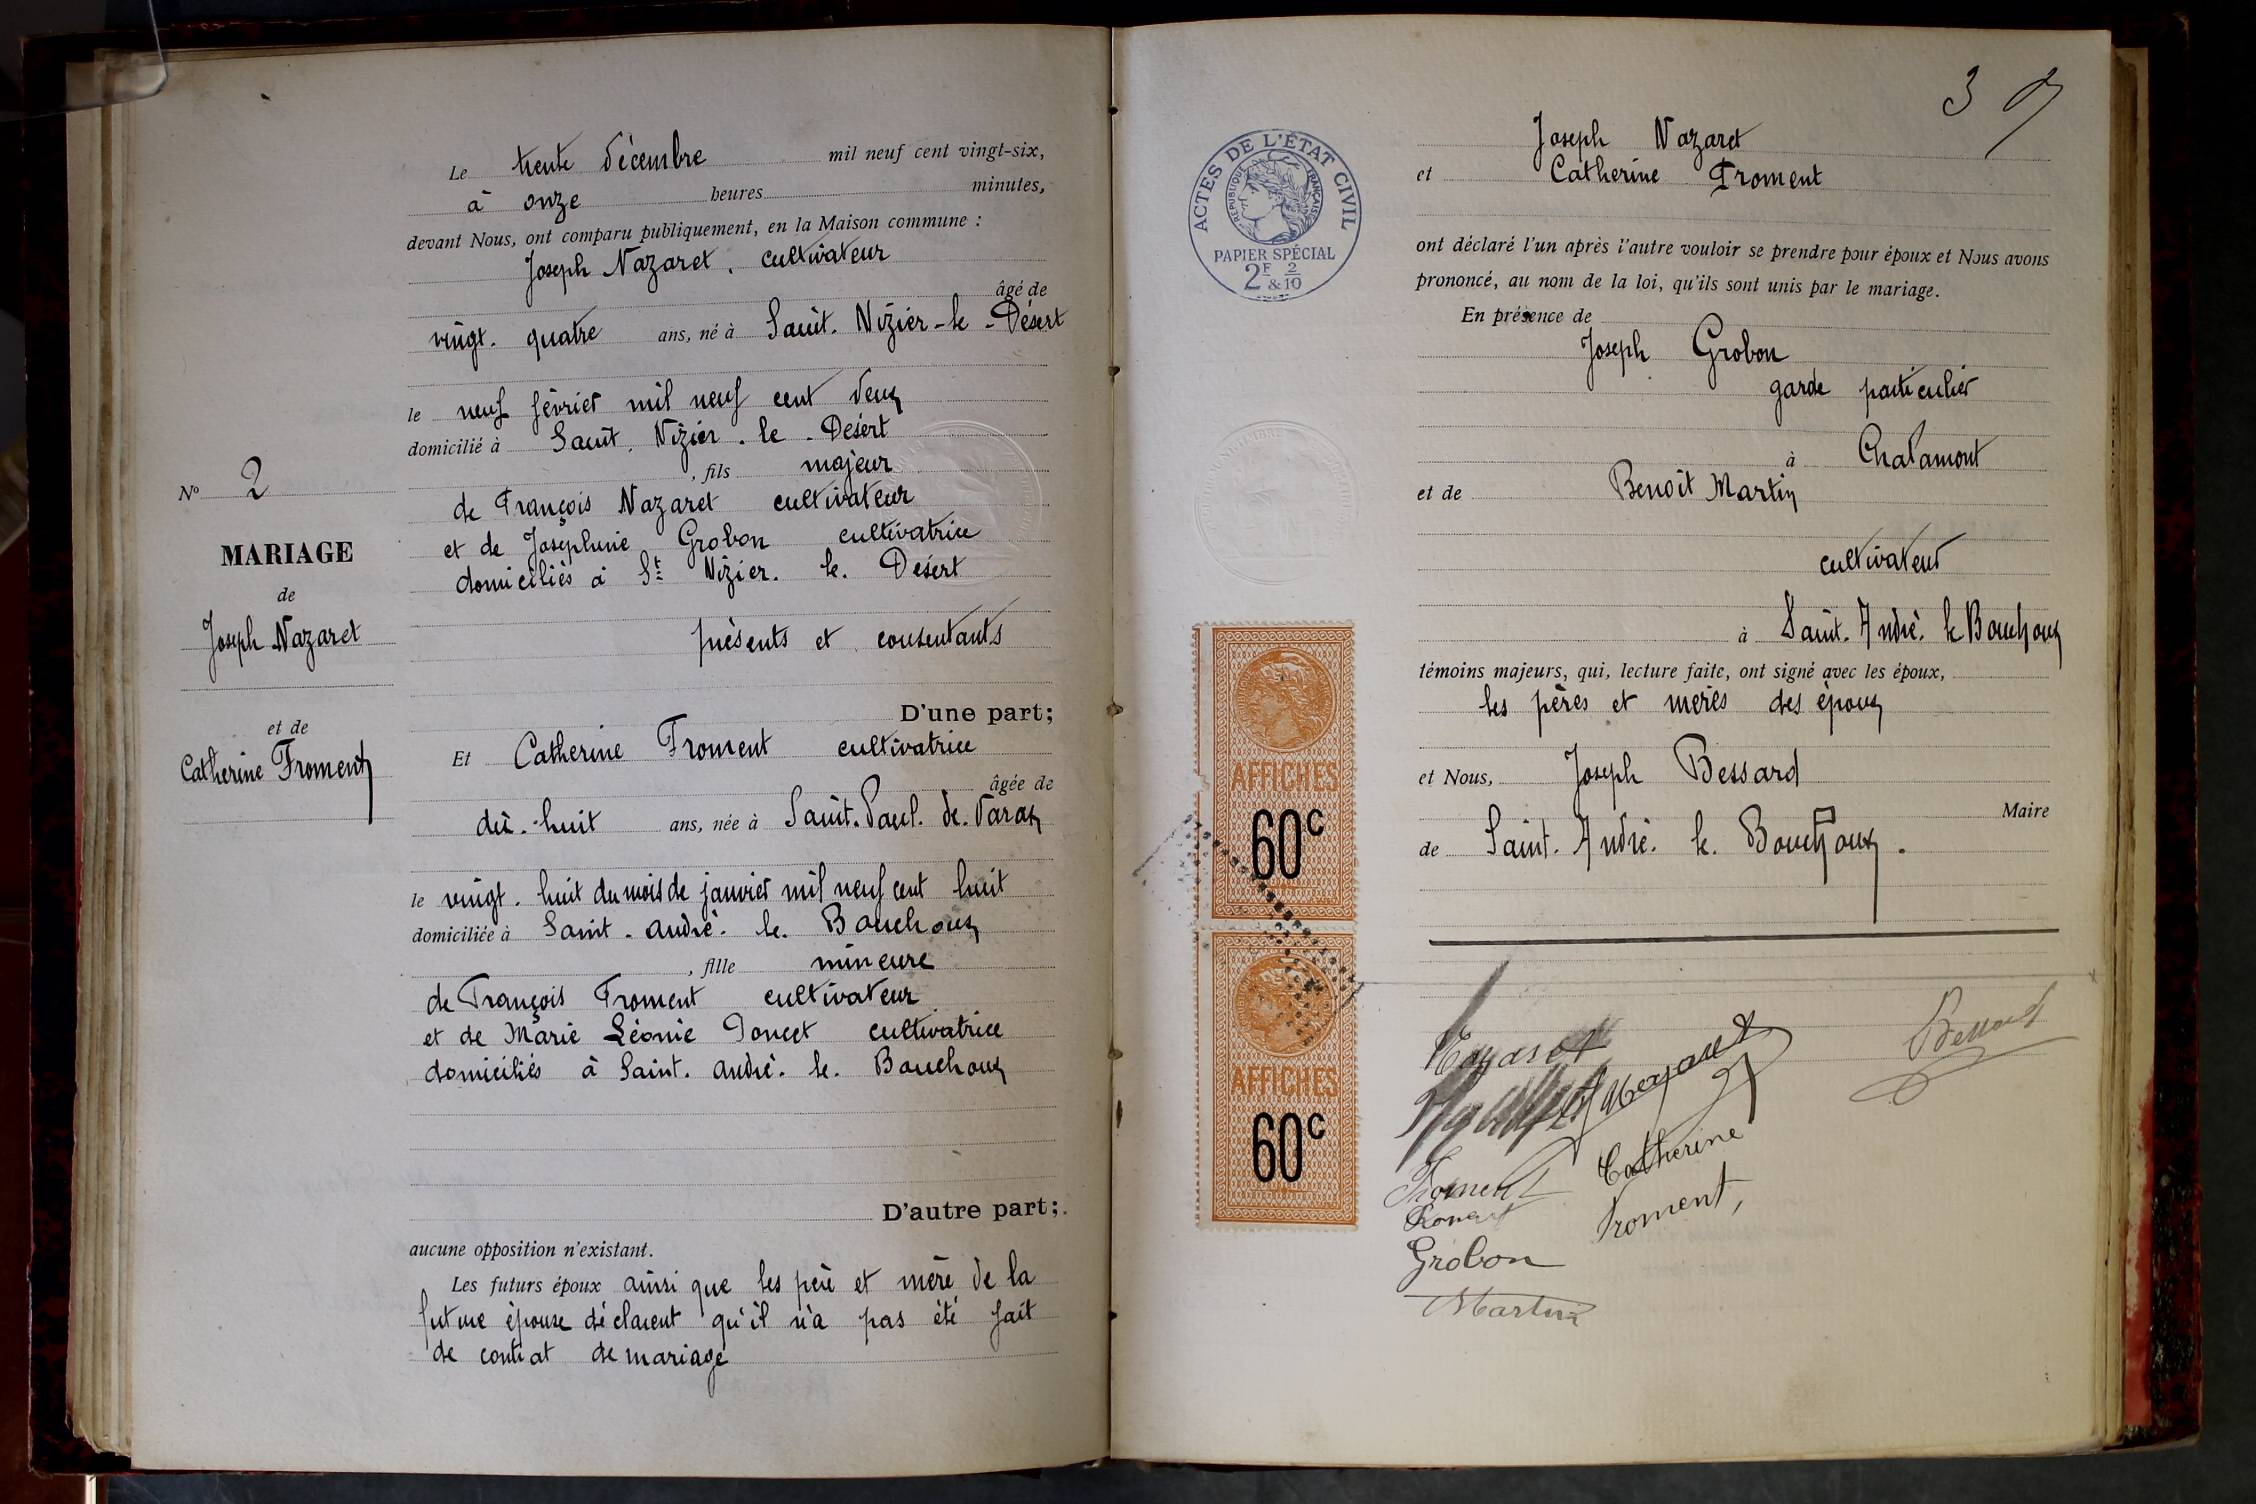 Le trente décembre mil neuf cent vingt-six,
à onze heures minutes,
devant Nous, ont comparu publiquement, en la Maison commune :
Joseph Nazaret. cultivateur
âgé de
vingt. quatre ans, né à Saint. Nizier-le-Désert
le neuf février mil neuf cent deux
domicilié à Saint. Nizier. le. Desért
, fils majeur
de François Nazaret cultivateur
et de Joséphine Grobon cultivatrice
domiciliés à St Nizier. le. Desért
présents et consentants
D'une part;
N° 2
MARIAGE
de
Joseph Nazaret
et de
Catherine Froment
Et Catherine Froment cultivatrice
âgée de
dix-huit ans, née à Saint. Paul. de. Varax
le vingt. huit du mois de janvier mil neuf cent huit
domiciliée à Saint. André. le. Bouchoux
, fille mineure
de François Froment cultivateur
et de Marie Léonie Poncet cultivatrice
domiciliés à Saint. André. le. Bouchoux
D'autre part;
aucune opposition n'existant.
Les futurs époux ainsi que les père et mère de la
future épouse déclarent qu'il n'a pas été fait
de contrat de mariage
3
ACTES DE L'ÉTAT CIVIL
RÉPUBLIQUE FRANÇAISE
PAPIER SPÉCIAL
2F 2/10
&
Joseph Nazaret
et Catherine Froment
ont déclaré l'un après l'autre vouloir se prendre pour époux et Nous avons
prononcé, au nom de la loi, qu'ils sont unis par le mariage.
En présence de
Joseph Grobon
garde particulier
à Chalamont
et de Benoît Martin
cultivateur
à Saint. André. le Bouchoux
témoins majeurs, qui, lecture faite, ont signé avec les époux,
les pères et mères des époux
et Nous, Joseph Bessard
Maire
de Saint. André. le. Bouchoux.
AFFICHES
60c
AFFICHES
60c
Nazaret
Bessard
Froment
Catherine
Froment,
Froment
Grobon
Martin